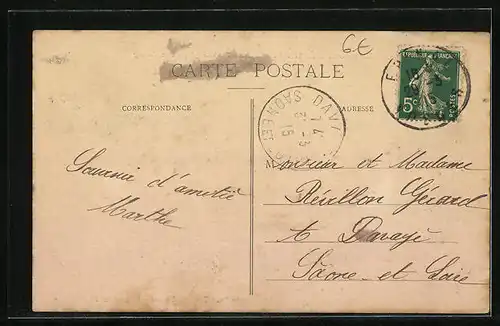 6€
CARTE POSTALE
CORRESPONDANCE
ADRESSE
REPUBLIQUE FRANÇAISE
5c
POSTES
DAVAYÉ
SAONE ET
7 - 3
15
Souvenir d'amitié
Marthe
Monsieur et Madame
Révillon Gérard
A Davayé
Saône et Loire